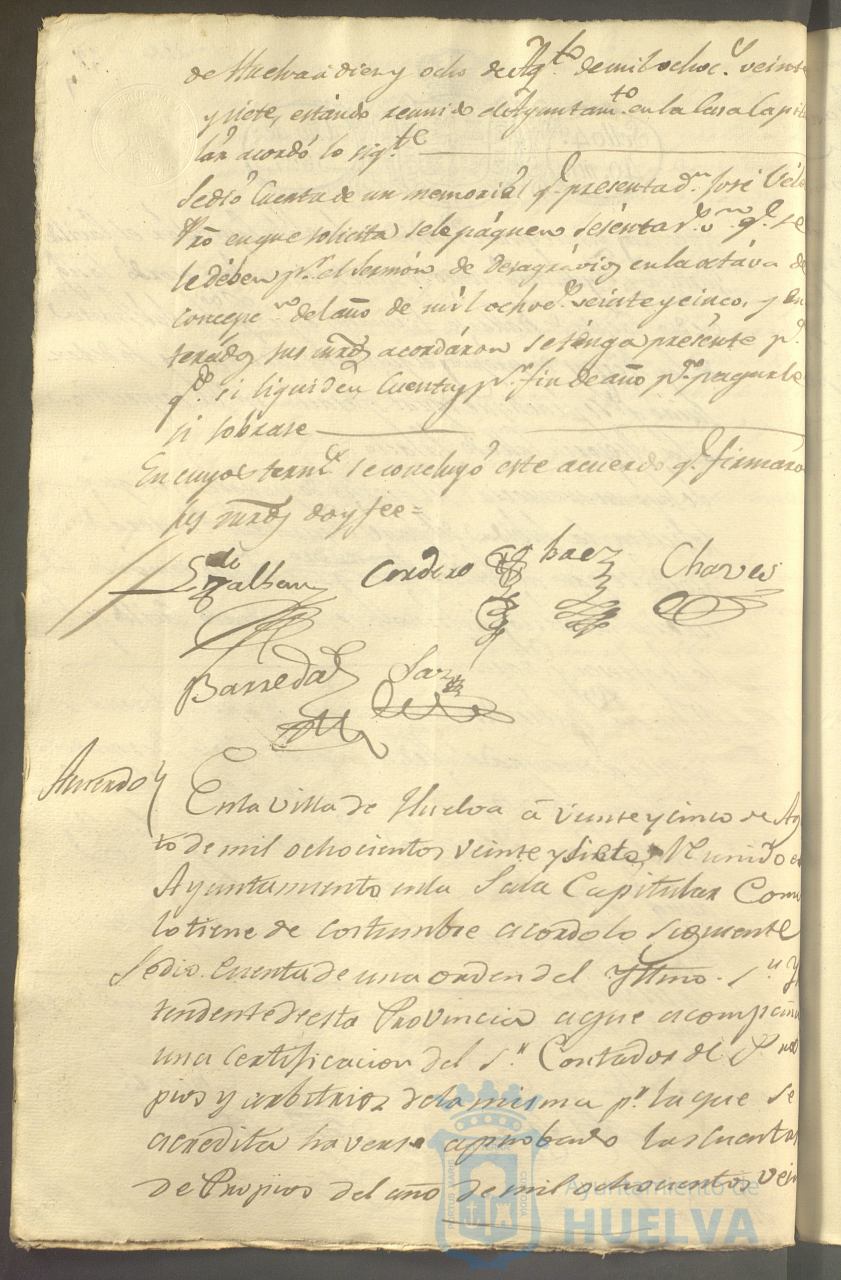 de Huelva a diez y ocho de Ag.to de mil ochoc.s veinte
y siete, estándo reunido el Ayuntam.to en la Casa Capitu
lár acordó lo sig.te
Se dió Cuenta de un memoriál q.e presenta d.n José Véle
Pro en que solicita se le páguen sesénta r.s v.n q.e se
le dében p.r el Sermón de Desagrávios en la octáva de
Concepc.on del año de mil ochoc.s veinte y cinco, y En
terados sus mrds acordáron se ténga presénte p.a
q.do se liquiden Cuentas p.r fin de año p.a pagarle
si sobrase
En cuyos term.s se concluyó este acuerdo q.e firmáro
sus mrds doy fee=
Cordero
baez
Chaves
Barreda
Saez
Acuerdo
En la villa de Huelva á veinte y cinco de Ag
to de mil ochocientos veinte y siete, Reunido el
Ayuntamiento en la Sala Capitular Como
lo tiene de costumbre acordo lo siguiente
Se dio Cuenta de una orden del Yltmo. S.r Yn
tendente de esta Provincia a que acompaña
una certificacion del S.r Contador de Pro
pios y arbitrios de la misma p.r la que se
acredita haverse aprobado las cuentas
de Propios del año de mil ochocientos vein
Ayuntamiento de
HUELVA